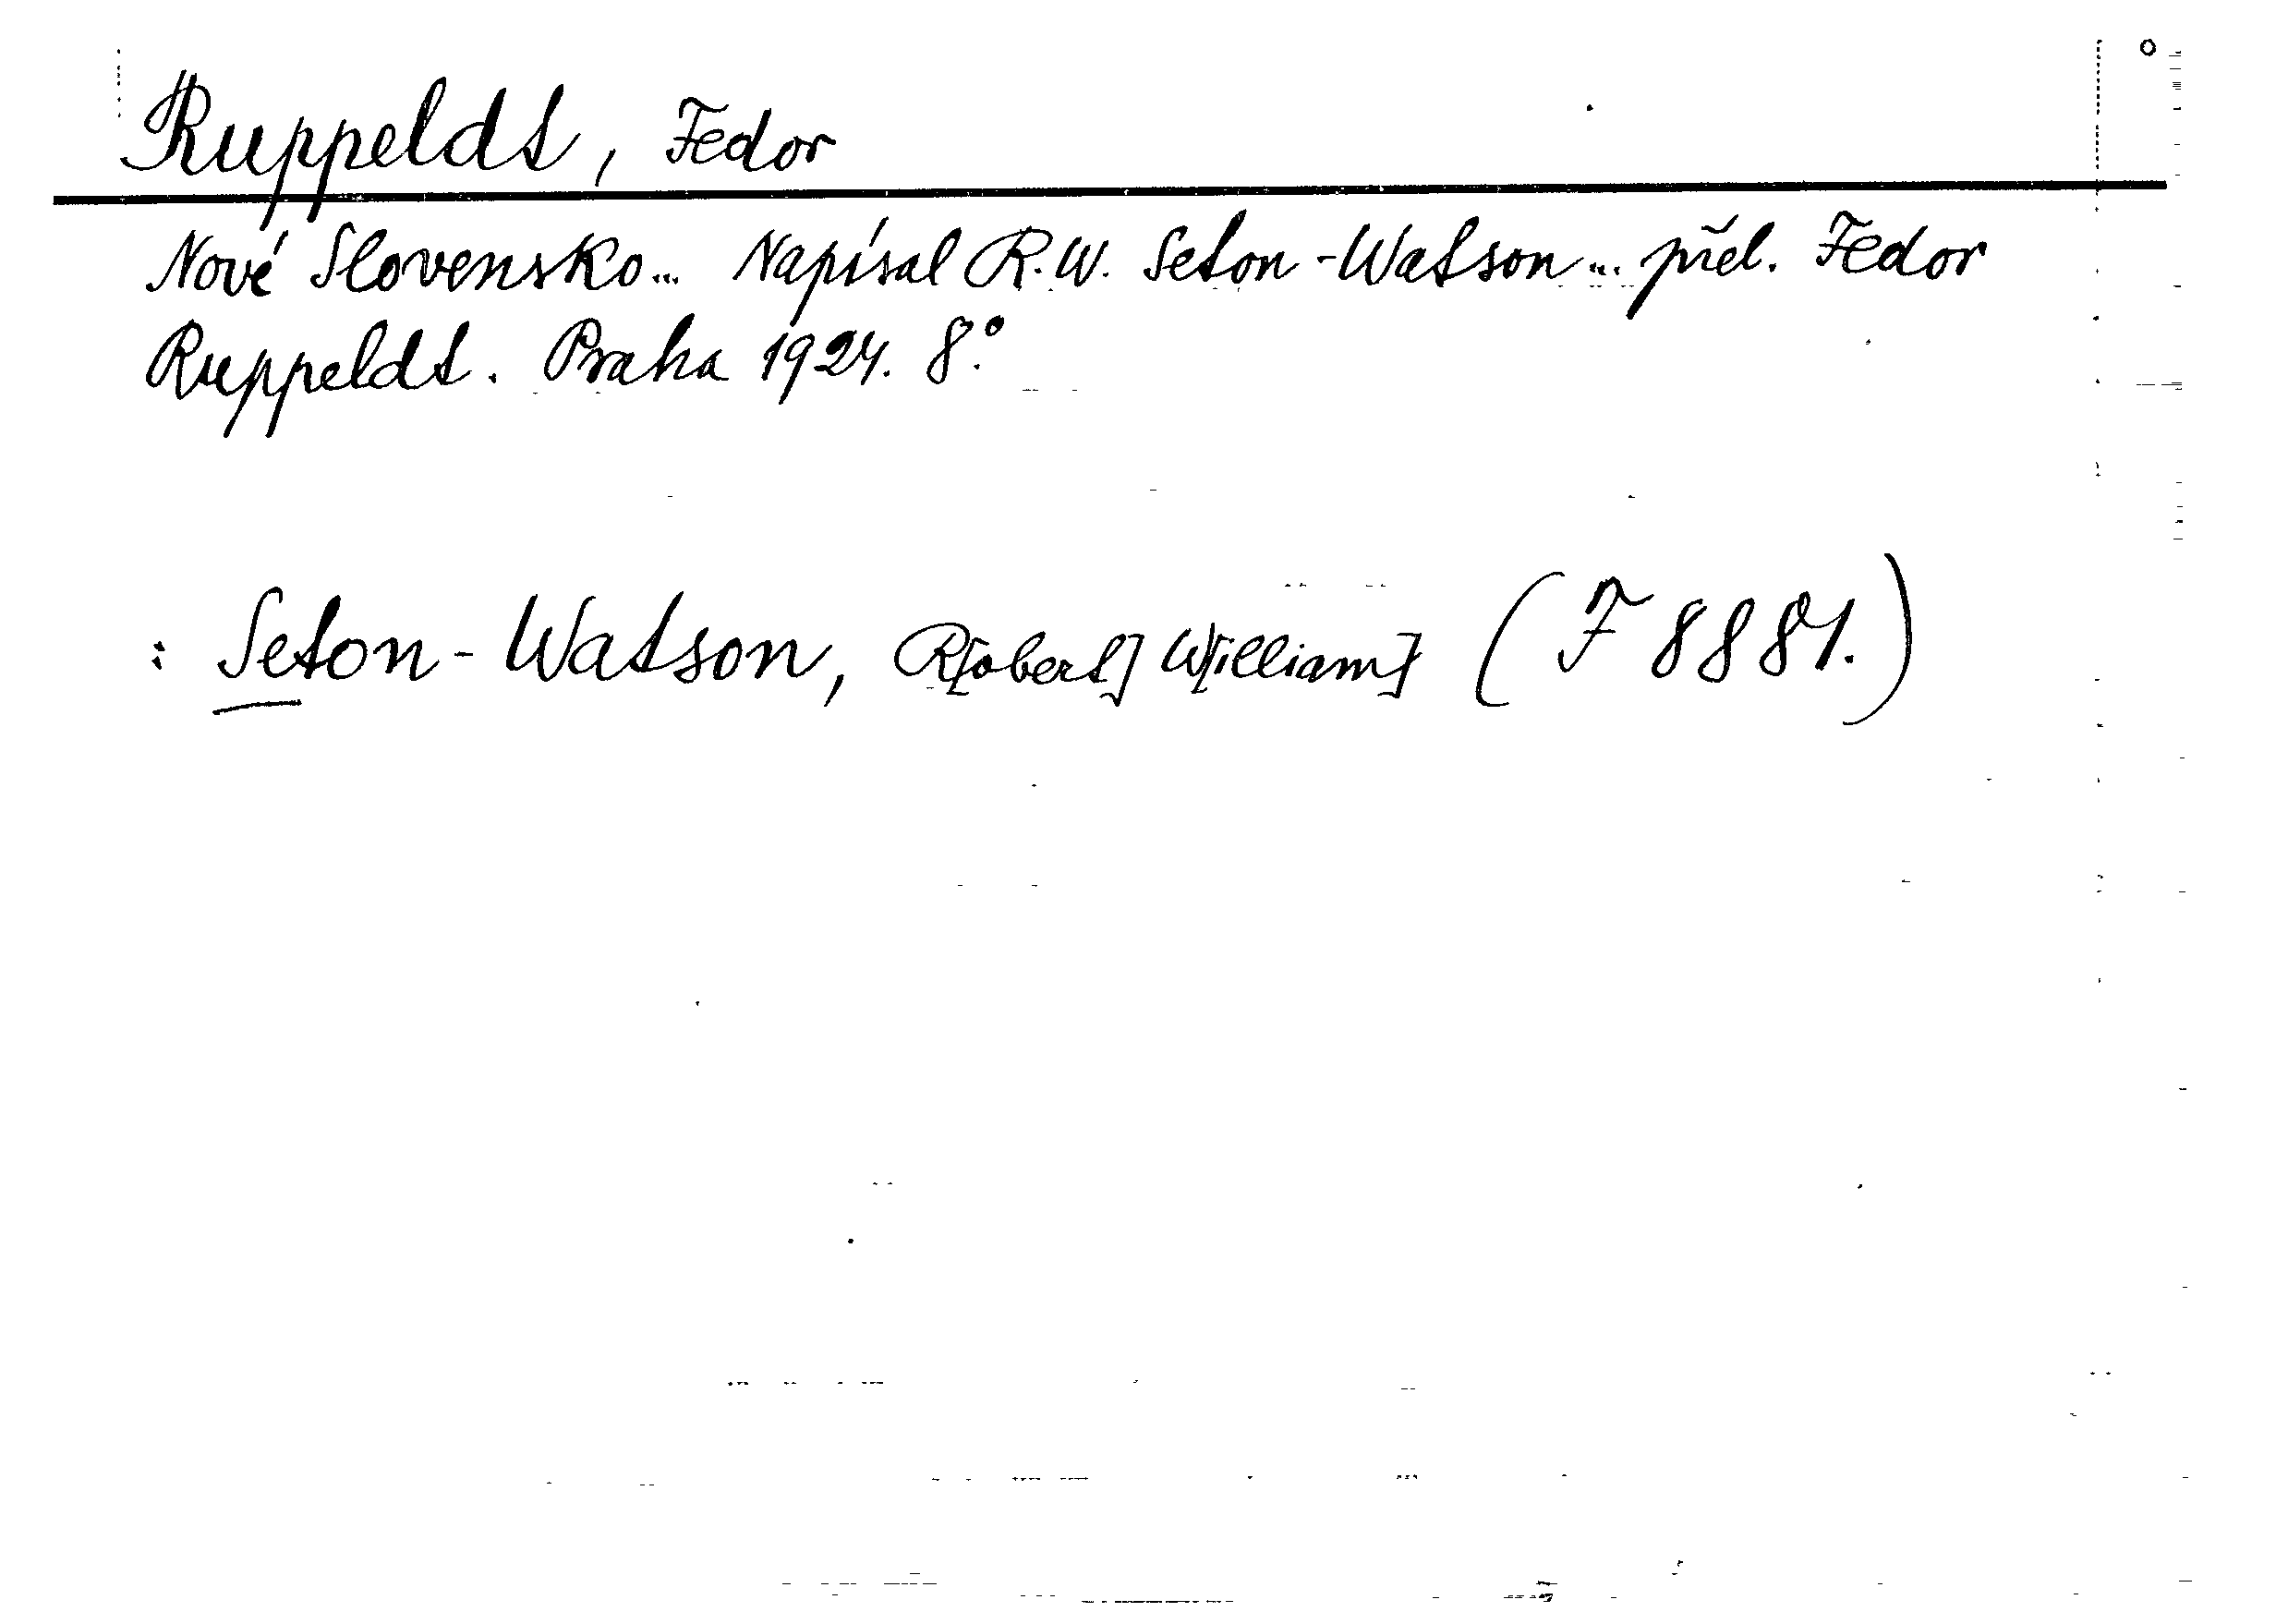 Ruppeldt, Fedor
Nové Slovensko... Napísal R. W. Seton-Watson... přel. Fedor
Ruppeldt. Praha 1924. 8.°
: Seton-Watson, R[obert] W[illiam] (F 8881.)